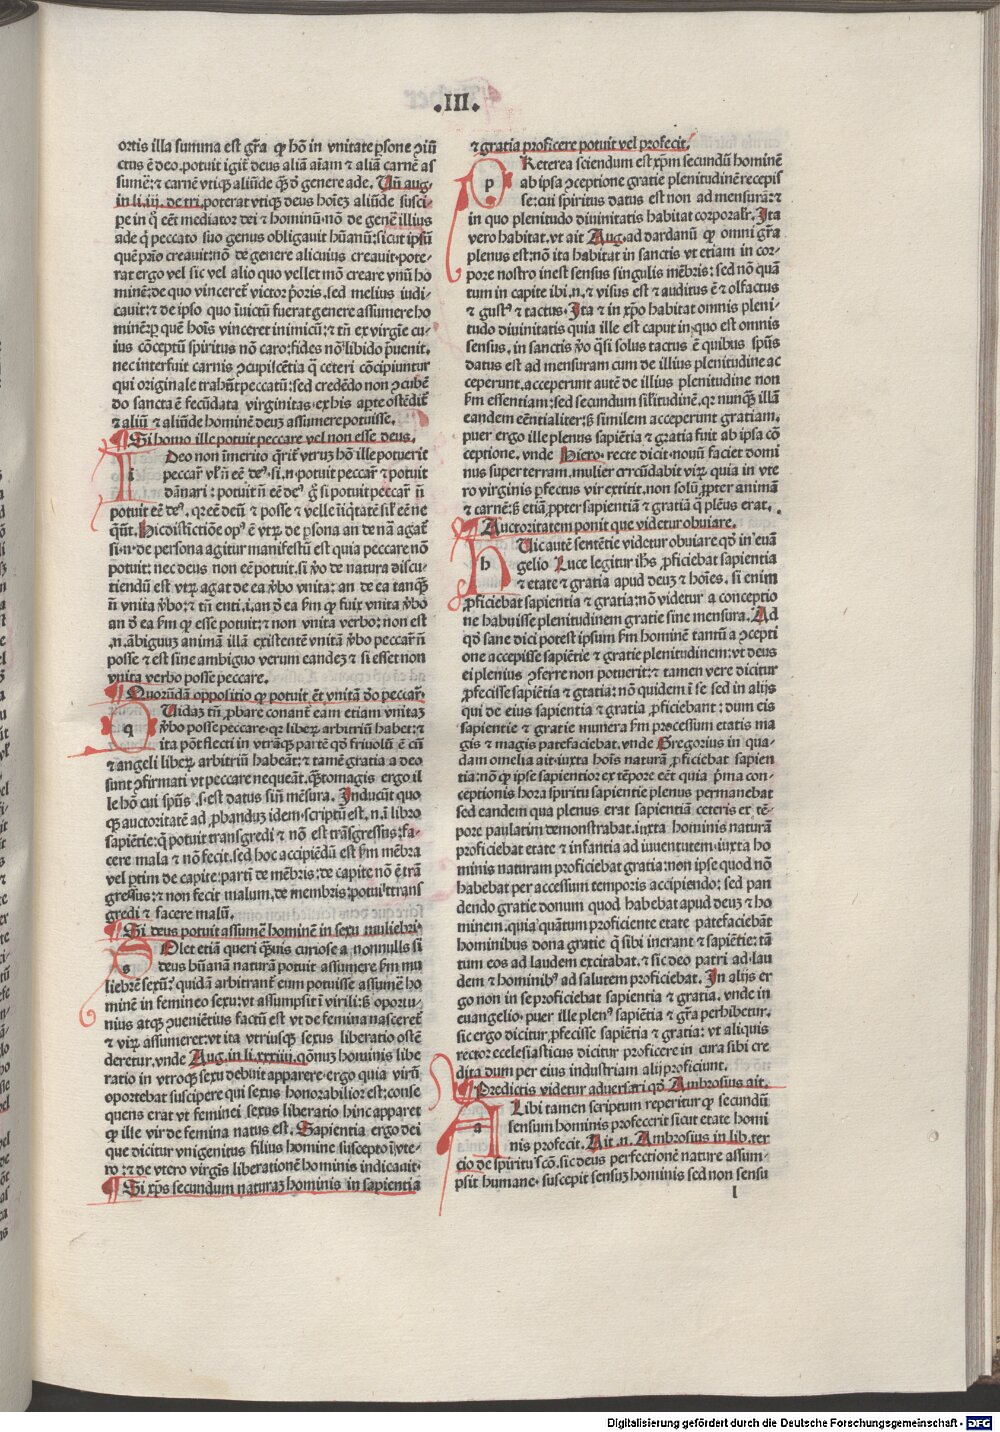 .III.
ortis illa summa est gr̃a ꝙ hõ in vnitate ꝑsone ꝯiũ
ctus ẽ deo. potuit igit̃ deus aliã aĩam ⁊ aliã carnẽ as
sumẽ: ⁊ carnẽ vtiqꝫ aliũde q̃ȝ ð genere ade. Vñ aug.
in li. iij. de tri. poterat vtiqꝫ deus hoĩeȝ aliũde susci-
ꝑe in q̃ eẽt mediator dei ⁊ hominũ. nõ de genẽ illius
ade q̃ peccato suo genus obligauit hũanũ: sicut ipsũ
quẽ pris creauit: nõ de genere alicuius creauit. pote-
rat ergo vel sic vel alio quo vellet mõ creare vnũ ho
minẽ: de quo vinceret̃ victor p̃oris. sed melius iudi-
cauit: ⁊ de ipso quo ĩuictũ fuerat genere assumere ho
minẽ: ꝑ quẽ hoĩs vinceret inimicũ: ⁊ tñ ex virgĩe cu-
ius cõceptũ spiritus nõ caro: fides nõ libido p̃uenit.
nec interfuit carnis ꝯcupiscẽtia q̃ ceteri cõcipiuntur
qui originale trahũt peccatũ: sed credẽdo non ꝯcubẽ
do sancta ẽ fecũdata virginitas. ex his aꝑte ostẽdit̃
⁊ aliũ ⁊ aliũde hominẽ deuȝ assumere potuisse.
¶ Si homo ille potuit peccare vel non esse deus.
i Deo non ĩmerito q̃rit̃ vtruȝ hõ ille potuerit
peccar̃ vl̃ ñ eẽ deꝰ. si. n. potuit peccar̃ ⁊ potuit
dãnari: potuit ñ eẽ deꝰ g̃ si potuit peccar̃ ñ
potuit eẽ deꝰ. qꝛ eẽ deũ ⁊ posse ⁊ velle iĩqtatẽ sil̃ eẽ ne
q̃ũt. Hic distĩctiõe opꝰ ẽ vtꝝ de ꝑsona an de nã agat̃
si. n. de persona agitur manifestũ est quia peccare nõ
potuit: nec deus non eẽ potuit. si ꝟo de natura discu-
tiendũ est vtꝝ agat de ea ꝟbo vnita: an de ea tanqȝ
ñ vnita ꝟbo: ⁊ tñ enti. i. an ð ea ẜm ꝙ fuit vnita ꝟbo
an ð ea ẜm ꝙ esse potuit: ⁊ non vnita verbo: non est
.n. ãbiguuȝ animã illã existentẽ vnitã ꝟbo peccar̃ ñ
posse ⁊ est sine ambiguo verum eandeȝ ⁊ si esset non
vnita verbo posse peccare.
¶ Quorũdã oppositio ꝙ potuit ẽt vnitã ꝟo peccar̃.
q Vidaȝ tñ ꝓbare conant̃ eam etiam vnitaȝ
ꝟbo posse peccare. qꝛ liberꝝ arbitriũ habet: ⁊
ita põt flecti in vtrãqꝫ partẽ qð friuolũ ẽ cũ
⁊ angeli liberꝝ arbitriũ habeãt: ⁊ tamẽ gratia a deo
sunt ꝯfirmati vt peccare nequeãt. q̃ȝtomagis ergo il
le hõ cui spũs. s. est datus siñ mẽsura. Inducũt quo
qꝫ auctoritatẽ ad ꝓbanduȝ idem. scriptũ est. n. ĩ libro
sapiẽtie: q̃ potuit transgredi ⁊ nõ est trãsgressus: fa-
cere mala ⁊ nõ fecit. sed hoc accipiẽdũ est ẜm mẽbra
vel ꝑtim de capite: parti de mẽbris: de capite nõ ẽ trã
gressus: ⁊ non fecit malum. de membris: potuit trans
gredi ⁊ facere malũ.
¶ Si deus potuit assumẽ hominẽ in sexu muliebri.
s Olet etiã queri q̃uis curiose a nonnullis si
deus hũanã naturã potuit assumere ẜm mu
liebrẽ sexũ? quidã arbitrant̃ eum potuisse assumẽ ho
minẽ in femineo sexu: vt assumpsit ĩ virili: ẜ oportu-
nius atqꝫ ꝯueniẽtius factũ est vt de femina nasceret̃
⁊ virꝝ assumeret: vt ita vtriusqꝫ sexus liberatio ostẽ
deretur. vnde Aug. in li. lxxxiiij. qõnuȝ hominis libe
ratio in vtroqꝫ sexu debuit apparere. ergo quia virũ
oportebat suscipere qui sexus honorabilior est: conse
quens erat vt feminei sexus liberatio hinc apparet
ꝙ ille vir de femina natus est. Sapientia ergo dei
que dicitur vnigenitus filius homine suscepto ĩ vte-
ro: ⁊ de vtero virgĩs liberationẽ hominis indicauit.
¶ Si xp̃s secundum naturaȝ hominis in sapientia
⁊ gratia proficere potuit vel profecit.
p Reterea sciendum est xp̃m secundũ hominẽ
ab ipsa ꝯceptione gratie plenitudinẽ recepis
se: cui spiritus datus est non ad mensurã: ⁊
in quo plenitudo diuinitatis habitat corporalr̃. Ita
vero habitat. vt ait Aug. ad dardanũ ꝙ omni gr̃a
plenus est: nõ ita habitat in sanctis vt etiam in cor-
pore nostro inest sensus singulis mẽbris: sed nõ quã
tum in capite ibi. n. ⁊ visus est ⁊ auditus ẽ ⁊ olfactus
⁊ gustꝰ ⁊ tactus. Ita ⁊ in xp̃o habitat omnis pleni-
tudo diuinitatis quia ille est caput in quo est omnis
sensus. in sanctis ꝟo q̃si solus tactus ẽ quibus spũs
datus est ad mensuram cum de illius plenitudine ac
ceperunt. acceperunt autẽ de illius plenitudine non
ẜm essentiam: sed secundum sil̃itudinẽ. qꝛ nunqȝ illã
eandem eẽntialiter: ẜ similem acceperunt gratiam.
puer ergo ille plenus sapiẽtia ⁊ gratia fuit ab ipsa cõ
ceptione. vnde Hiero. recte dicit. nouũ faciet domi
nus super terram. mulier circũdabit virꝝ quia in vte
ro virginis ꝑfectus vir extitit. non solũ ꝓpter animã
⁊ carnẽ: ẜ etiã ꝓpter sapientiã ⁊ gratiã q̃ plẽus erat.
¶ Auctoritatem ponit que videtur obuiare.
h Vic autẽ sentẽtie videtur obuiare qð in euã
gelio Luce legitur ihs̃ ꝓficiebat sapientia
⁊ etate ⁊ gratia apud deuȝ ⁊ hoĩes. si enim
ꝓficiebat sapientia ⁊ gratia: nõ videtur a conceptio
ne habuisse plenitudinem gratie sine mensura. Ad
qð sane dici potest ipsum ẜm hominẽ tantũ a ꝯcepti
one accepisse sapiẽtie ⁊ gratie plenitudinem: vt deus
ei plenius ꝯferre non potuerit: ⁊ tamen vere dicitur
ꝓfecisse sapiẽtia ⁊ gratia: nõ quidem ĩ se sed in alijs
qui de eius sapientia ⁊ gratia ꝓficiebant: dum eis
sapientie ⁊ gratie munera ẜm ꝓcessum etatis ma
gis ⁊ magis patefaciebat. vnde Gregorius in qua-
dam omelia ait. iuxta hoĩs naturã ꝓficiebat sapien
tia: nõ ꝙ ipse sapientior ex tẽpore eẽt quia p̃ma con-
ceptionis hora spiritu sapientie plenus permanebat
sed eandem qua plenus erat sapientiã ceteris ex tẽ-
pore paulatim demonstrabat. iuxta hominis naturã
proficiebat etate ⁊ infantia ad iuuentutem. iuxta ho
minis naturam proficiebat gratia: non ipse quod nõ
habebat per accessum temporis accipiendo: sed pan
dendo gratie donum quod habebat apud deuȝ ⁊ ho
minem. quia quãtum proficiente etate patefaciebãt
hominibus dona gratie q̃ sibi inerant ⁊ sapiẽtie: tã
tum eos ad laudem excitabat. ⁊ sic deo patri ad lau
dem ⁊ hominibꝰ ad salutem proficiebat. In alijs er
go non in se proficiebat sapientia ⁊ gratia. vnde in
euangelio. puer ille plenꝰ sapiẽtia ⁊ gr̃a perhibetur.
sic ergo dicitur ꝓfecisse sapiẽtia ⁊ gratia: vt aliquis
rector ecclesiasticus dicitur proficere in cura sibi cre
dita dum per eius industriam alij proficiunt.
¶ Predictis videtur aduersari qð Ambrosius ait.
a Libi tamen scriptum reperitur ꝙ secundũ
sensum hominis profecerit sicut etate homi
nis profecit. Ait. n. Ambrosius in lib. ter
cio de spiritu scõ. sic deus perfectionẽ nature assum-
psit humane. suscepit sensuȝ hominis sed non sensu
l
Digitalisierung gefördert durch die Deutsche Forschungsgemeinschaft - DFG